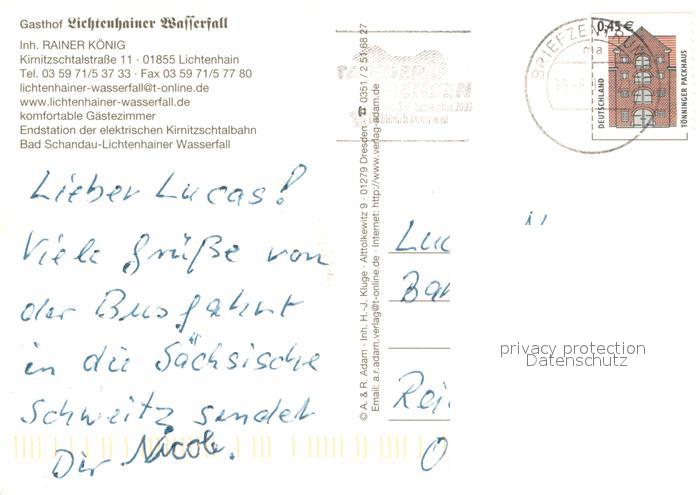 Gasthof Lichtenhainer Wasserfall
Inh. RAINER KÖNIG
Kirnitzschtalstraße 11 · 01855 Lichtenhain
Tel. 03 59 71/5 37 33 · Fax 03 59 71/5 77 80
lichtenhainer-wasserfall@t-online.de
www.lichtenhainer-wasserfall.de
komfortable Gästezimmer
Endstation der elektrischen Kirnitzschtalbahn
Bad Schandau-Lichtenhainer Wasserfall
Lieber Lucas!
Viele Grüße von
der Busfahrt
in die Sächsische
Schweitz sendet
Dir Nicole.
© A. & R. Adam · Inh. H.-J. Kluge · Alttolkewitz 9 · 01279 Dresden · ☎ 0351 / 2 51 68 27
Email: a.r.adam.verlag@t-online.de · Internet: http://www.verlag-adam.de
BRIEFZENTRUM
0,45 €
DEUTSCHLAND
TÖNNINGER PACKHAUS
Luc
Bar
Rei
O
privacy protection
Datenschutz